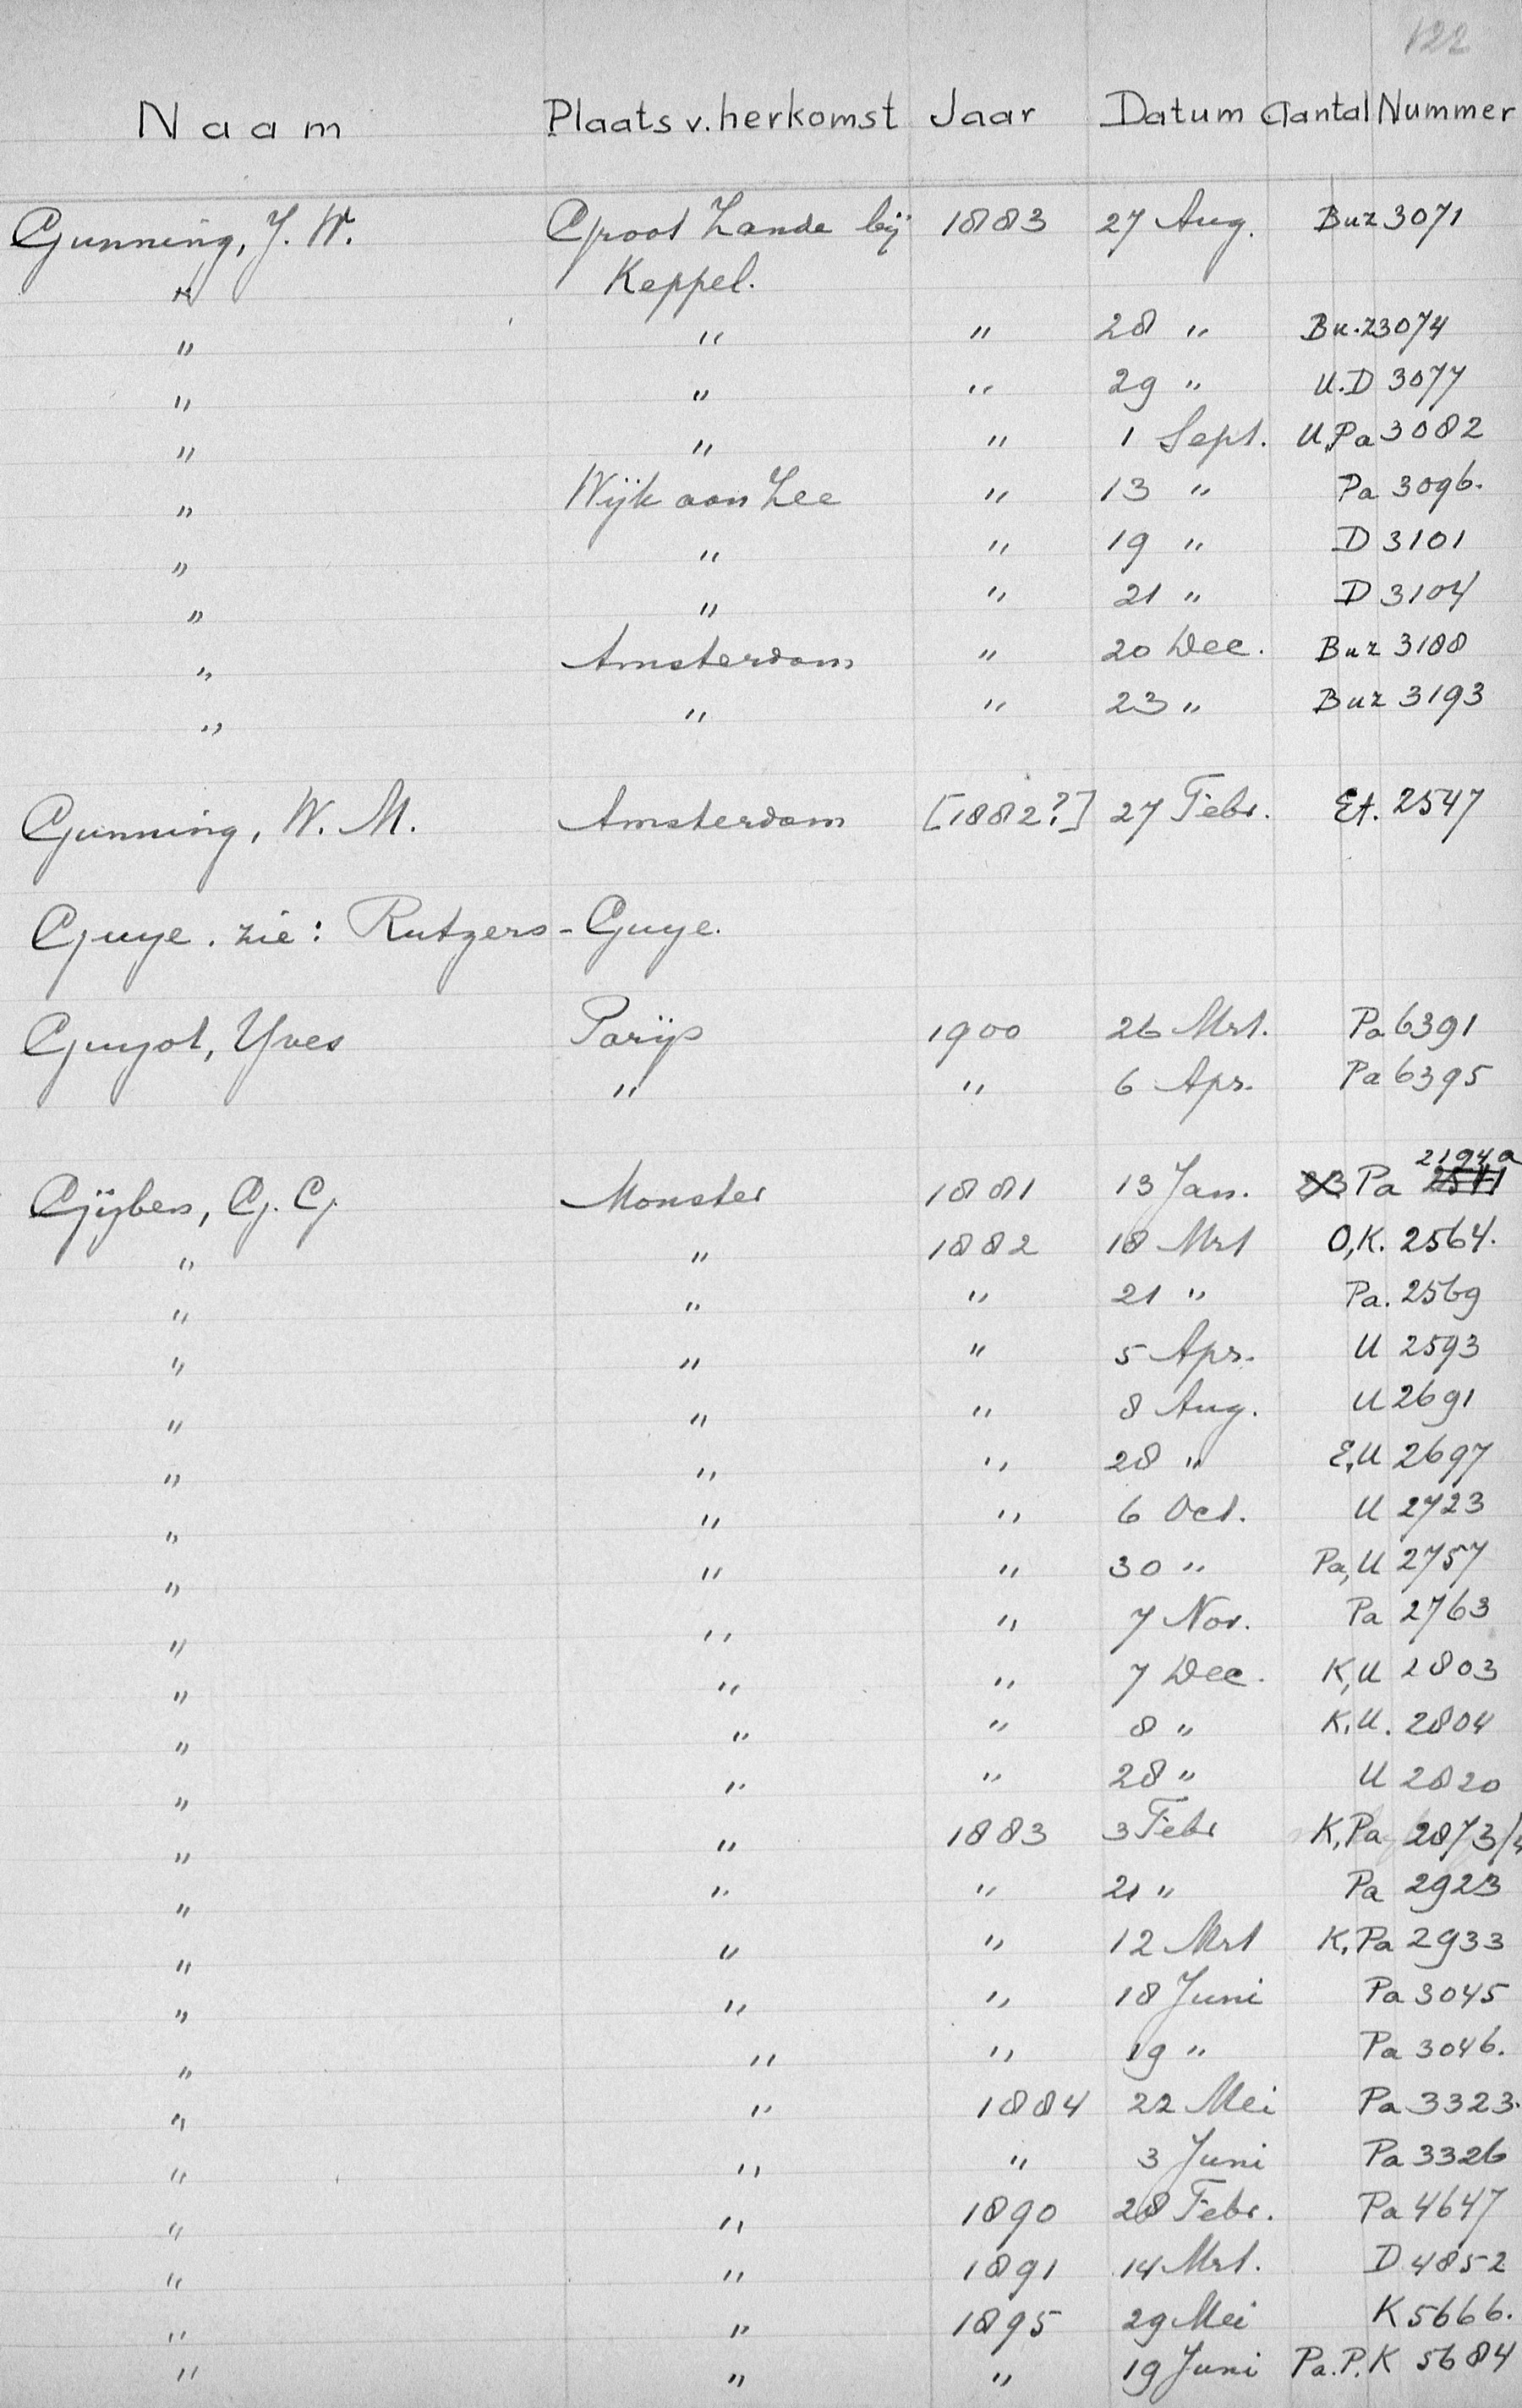 122
Naam Plaats v. herkomst Jaar Datum Aantal Nummer
Gunning, J. W. Groot Zande bij 1883 27 Aug. Buz 3071
" Keppel.
" " " 28 " Bu.z 3074
" " " 29 " U.D 3077
" " " 1 Sept. U,Pa 3082
" Wijk aan Zee " 13 " Pa 3096.
" " " 19 " D 3101
" " " 21 " D 3104
" Amsterdam " 20 Dec. Buz 3188
" " " 23 " Buz 3193
Gunning, W. M. Amsterdam [1882?] 27 Febr. Et. 2547
Guye. zie: Rutgers-Guye.
Guyot, Yves Parijs 1900 26 Mrt. Pa 6391
" " 6 Apr. Pa 6395
2194a
Gijben, G. G. Monster 1881 13 Jan. Pa
" " 1882 18 Mrt O,K. 2564.
" " " 21 " Pa. 2569
" " " 5 Apr. U 2593
" " " 8 Aug. U 2691
" " " 28 " E,U 2697
" " " 6 Oct. U 2723
" " " 30 " Pa,U 2757
" " " 7 Nov. Pa 2763
" " " 7 Dec. K,U 2803
" " " 8 " K,U. 2804
" " " 28 " U 2820
" " 1883 3 Febr K,Pa 2873/4
" " " 21 " Pa 2923
" " " 12 Mrt K,Pa 2933
" " " 18 Juni Pa 3045
" " " 19 " Pa 3046.
" " 1884 22 Mei Pa 3323.
" " " 3 Juni Pa 3326
" " 1890 28 Febr. Pa 4647
" " 1891 14 Mrt. D 4852
" " 1895 29 Mei K 5666.
" " " 19 Juni Pa.P.K 5684